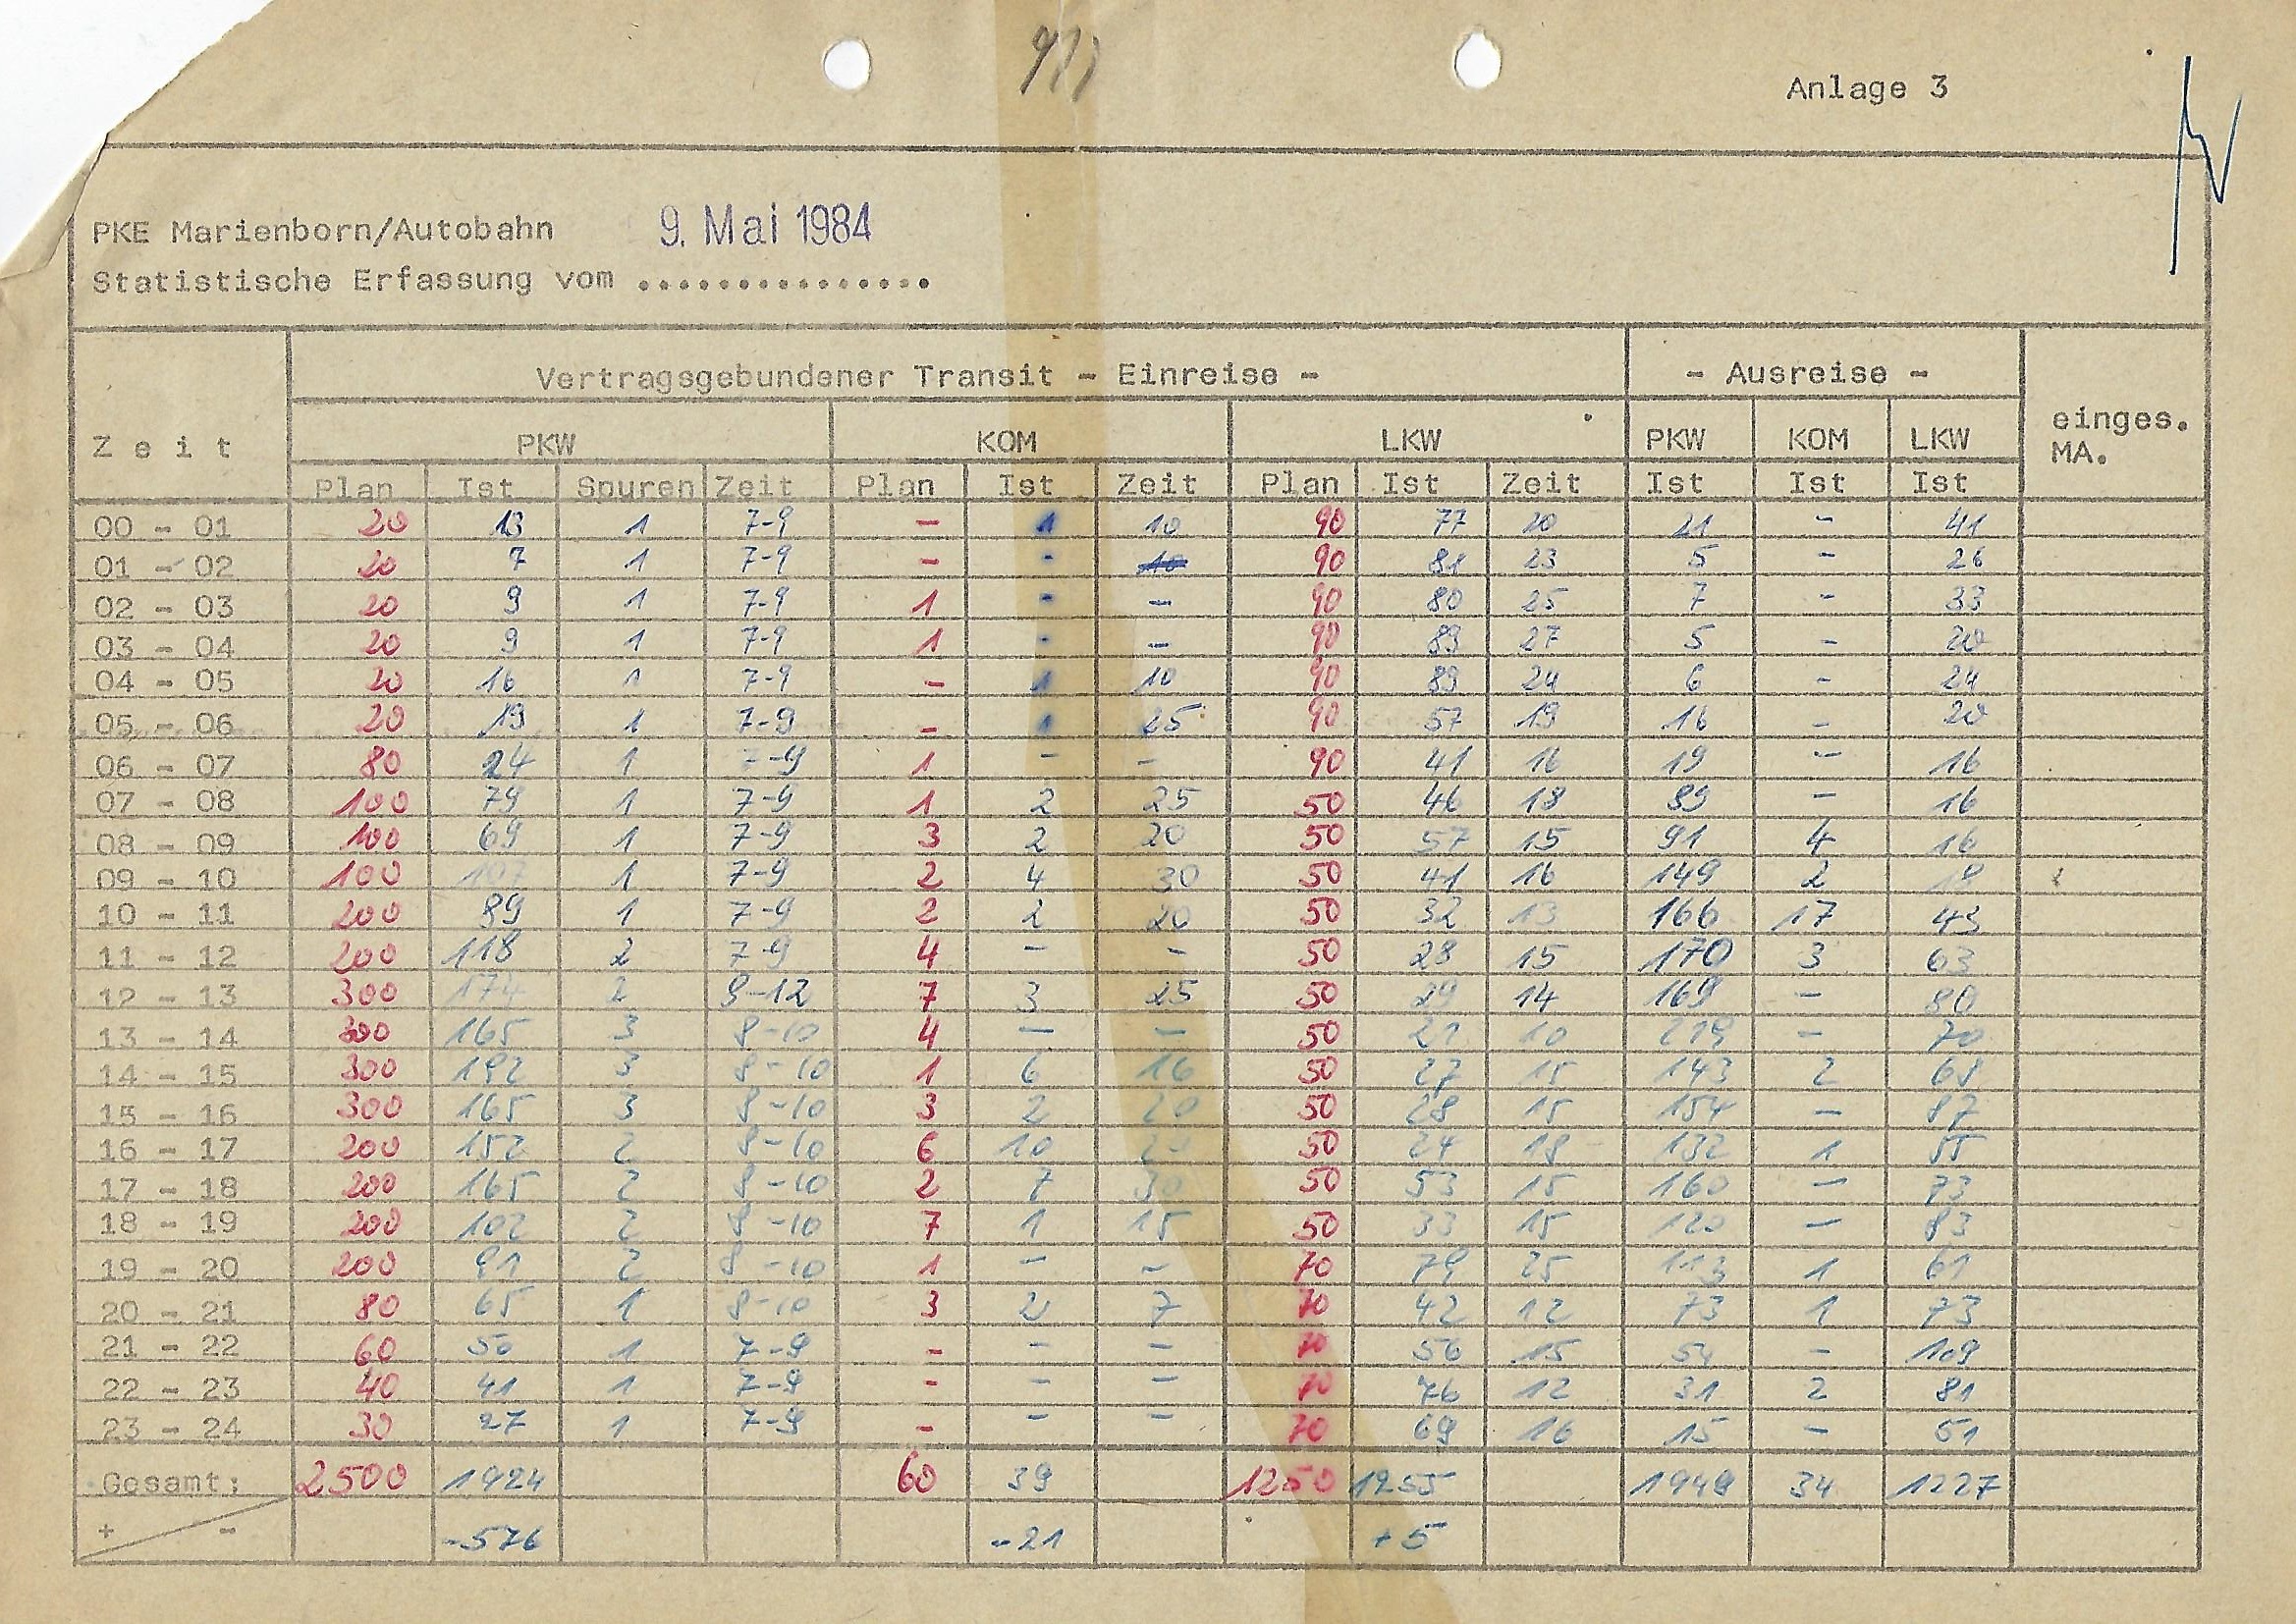 Anlage 3
PKE Marienborn/Autobahn 9. Mai 1984
Statistische Erfassung vom ...............
Vertragsgebundener Transit - Einreise - - Ausreise -
Zeit PKW KOM LKW PKW KOM LKW einges. MA.
Plan Ist Spuren Zeit Plan Ist Zeit Plan Ist Zeit Ist Ist Ist
00 - 01 20 13 1 7-9 - 1 10 90 77 20 21 - 41
01 - 02 20 7 1 7-9 - - 10 90 81 23 5 - 26
02 - 03 20 9 1 7-9 1 - - 90 80 25 7 - 33
03 - 04 20 9 1 7-9 1 - - 90 89 27 5 - 20
04 - 05 20 16 1 7-9 - 1 10 90 89 24 6 - 24
05 - 06 20 19 1 7-9 - 1 25 90 57 19 16 - 20
06 - 07 80 24 1 7-9 1 - - 90 41 16 19 - 16
07 - 08 100 79 1 7-9 1 2 25 50 46 18 89 - 16
08 - 09 100 69 1 7-9 3 2 20 50 57 15 91 4 16
09 - 10 100 107 1 7-9 2 4 30 50 41 16 149 2 18
10 - 11 200 89 1 7-9 2 2 20 50 32 13 166 17 43
11 - 12 200 118 2 7-9 4 - - 50 28 15 170 3 63
12 - 13 300 174 2 9-12 7 3 25 50 29 14 169 - 80
13 - 14 300 165 3 8-10 4 - - 50 21 10 219 - 70
14 - 15 300 192 3 8-10 1 6 16 50 27 15 143 2 68
15 - 16 300 165 3 8-10 3 2 20 50 28 15 154 - 87
16 - 17 200 152 2 8-10 6 10 20 50 24 18 132 1 55
17 - 18 200 165 2 8-10 2 7 30 50 53 15 160 - 73
18 - 19 200 102 2 8-10 7 1 15 50 33 15 120 - 83
19 - 20 200 91 2 8-10 1 - - 70 79 25 113 1 61
20 - 21 80 65 1 8-10 3 2 7 70 42 12 73 1 73
21 - 22 60 50 1 7-9 - - - 70 56 15 54 - 109
22 - 23 40 41 1 7-9 - - - 70 76 12 31 2 81
23 - 24 30 27 1 7-9 - - - 70 69 16 15 - 51
Gesamt: 2500 1924 60 39 1250 1255 1949 34 1227
+ - -576 -21 +5